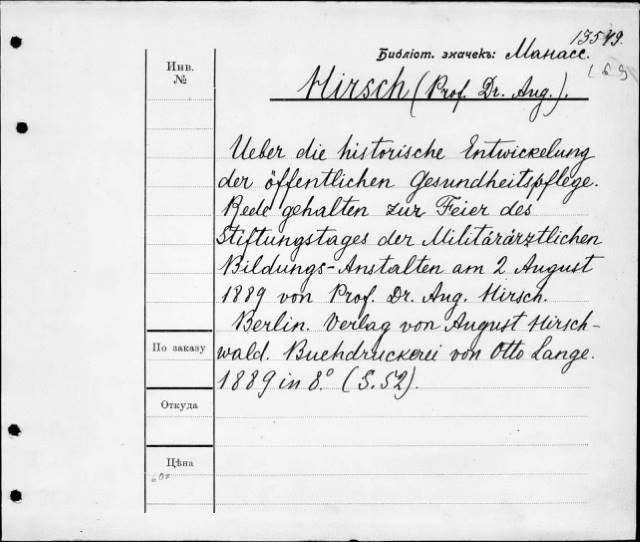 13549.
Библіот. значекъ: Манасс.
Инв.
№
Hirsch (Prof. Dr. Aug.).
Ueber die historische Entwickelung
der öffentlichen Gesundheitspflege.
Rede gehalten zur Feier des
Stiftungstages der Militärärztlichen
Bildungs-Anstalten am 2 August
1889 von Prof. Dr. Aug. Hirsch.
Berlin. Verlag von August Hirsch-
wald. Buchdruckerei von Otto Lange.
1889 in 8° (S. 52).
По заказу
Откуда
Цѣна